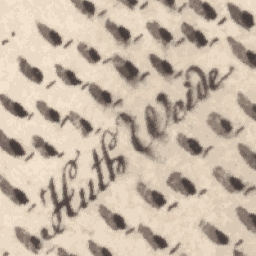 Huth Weide